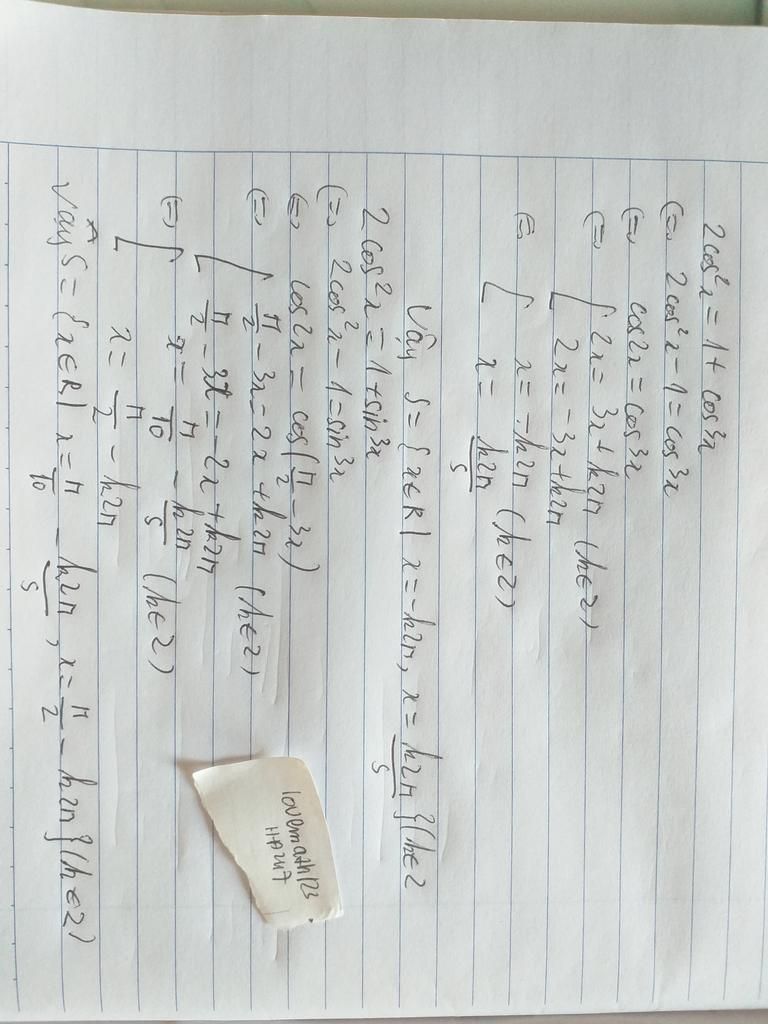 2cos²x = 1 + cos3x
(=) 2cos²x - 1 = cos3x
(=) cos2x = cos3x
(=) [ 2x = 3x + k2π (k∈Z)
[ 2x = -3x + k2π
(=) [ x = -k2π (k∈Z)
[ x = k2π/5
Vậy S = {x∈R | x = -k2π, x = k2π/5 }(k∈Z
2cos²x = 1 + sin3x
(=) 2cos²x - 1 = sin3x
(=) cos2x = cos(π/2 - 3x)
(=) [ π/2 - 3x = 2x + k2π (k∈Z)
[ π/2 - 3x = -2x + k2π
(=) [ x = π/10 - k2π/5 (k∈Z)
[ x = π/2 - k2π
Vậy S = {x∈R | x = π/10 - k2π/5, x = π/2 - k2π}(k∈Z)
lovemath123